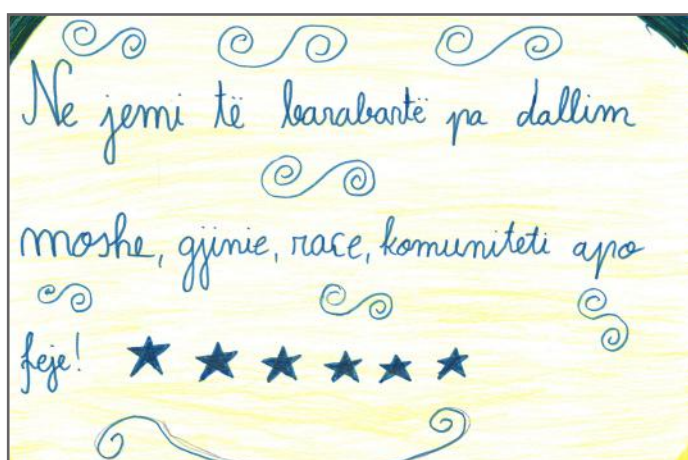 Ne jemi të barabartë pa dallim
moshe, gjinie, race, komuniteti apo
feje!